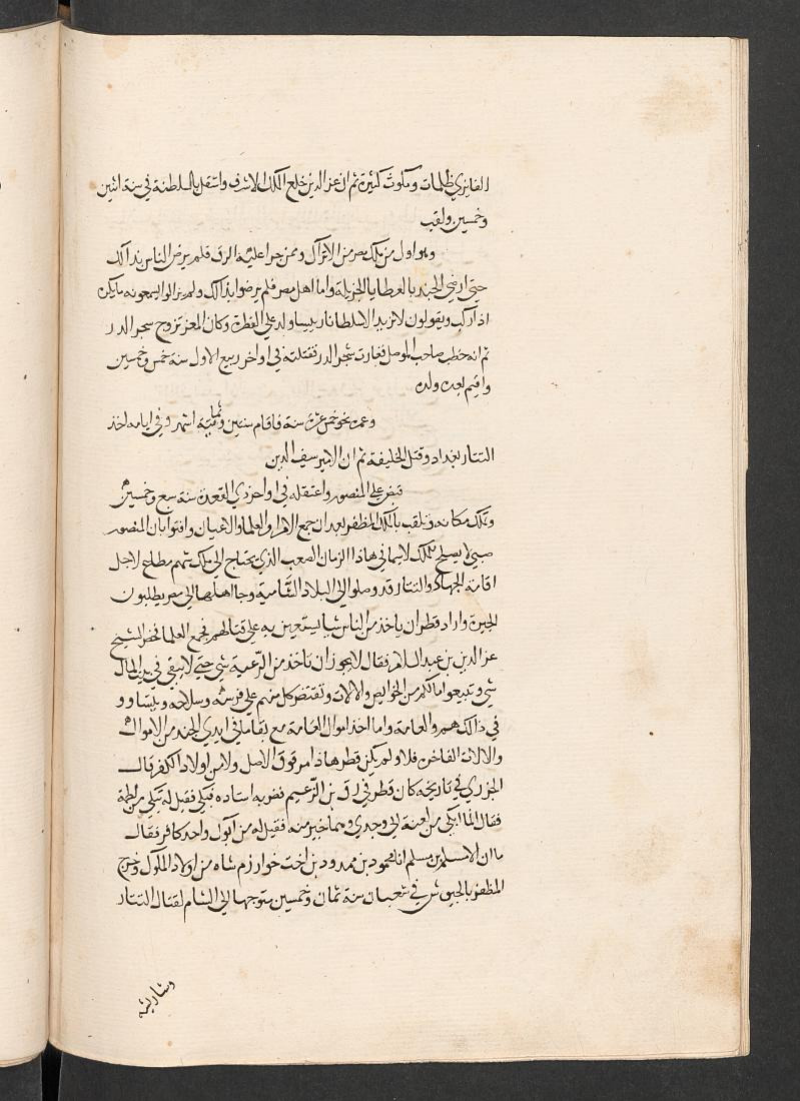 الفائزي ظلامات ومكوث كثيرة ثم ان عز الدين خلع الملك الاشرف واستقل بالسلطنة في سنة اثنين
وخمسين ولقب
وهو اول من ملك مصر من الاتراك وممن جرا عليه الرق فلم يرض الناس بذالك
حتي ارضي الجند بالعطايا الجزيلة واما اهل مصر فلم يرضوا بذالك ولم يزالوا يسمعونه مايكره
اذا ركب ويقولون لا نريد الا سلطانا رييسا ولد علي الفطرة وكان المعز تزوج شجر الدر
ثم انه خطب ابنة صاحب الموصل فغارت شجر الدر فقتلته في اواخر ربيع الاول سنة خمس وخمسين
واقيم بعده ولده
وعمره نحو خمس عشرة سنة فاقام سنتين وثمانية اشهر وفي ايامه اخذ
التتار بغداد وقتل الخليفة ثم ان الامير سيف الدين
قبض علي المنصور واعتقله في اواخر ذي القعدة سنة سبع وخمسين
وتملك مكانه وتلقب بالملك المظفر بعد ان جمع الامرا والعلما والاعيان وافتوا بان المنصور
صبي لا يصلح للملك لاسيما في هاذا الزمان الصعب الذي يحتاج الي ملك شهم مطاع لاجل
اقامة الجهاد والتتار قد وصلوا الي البلاد الشامية وجا اهلها الي مصر يطلبون
الجيرة واراد قطز ان ياخذ من الناس شيا يستعين به علي قتالهم فجمع العلما فحضر الشيخ
عز الدين بن عبد السلام فقال لا يجوز ان تاخذ من الرعية شي حتي لا يبقي في بيت المال
شي وتبيعوا مالكم من الحوايص والالات ويقتصر كل منهم علي فرسه وسلاحه ويتساوو
في ذالك هم والعامة واما اخذ اموال العامة مع بقا ما في ايدي الجند من الاموال
والالات الفاخرة فلا ولم يكن قطز هاذا مرقوق الاصل ولا من اولاد الكفر قال
الجزري في تاريخه كان قطز في رق بن الزعيم فضربه استاده فبكي فقيل له تبكي من لطمة
فقال انما ابكي من لعنة ابي وجدي وهما خير منه فقيل له من ابوك واحد كافر فقال
ما انا الا مسلم بن مسلم انا محمود بن ممدود بن اخت خوارزم شاه من اولاد الملوك وخرج
المظفر بالجيوش في شعبان سنة ثمان وخمسين متوجها الي الشام لقتال التتار